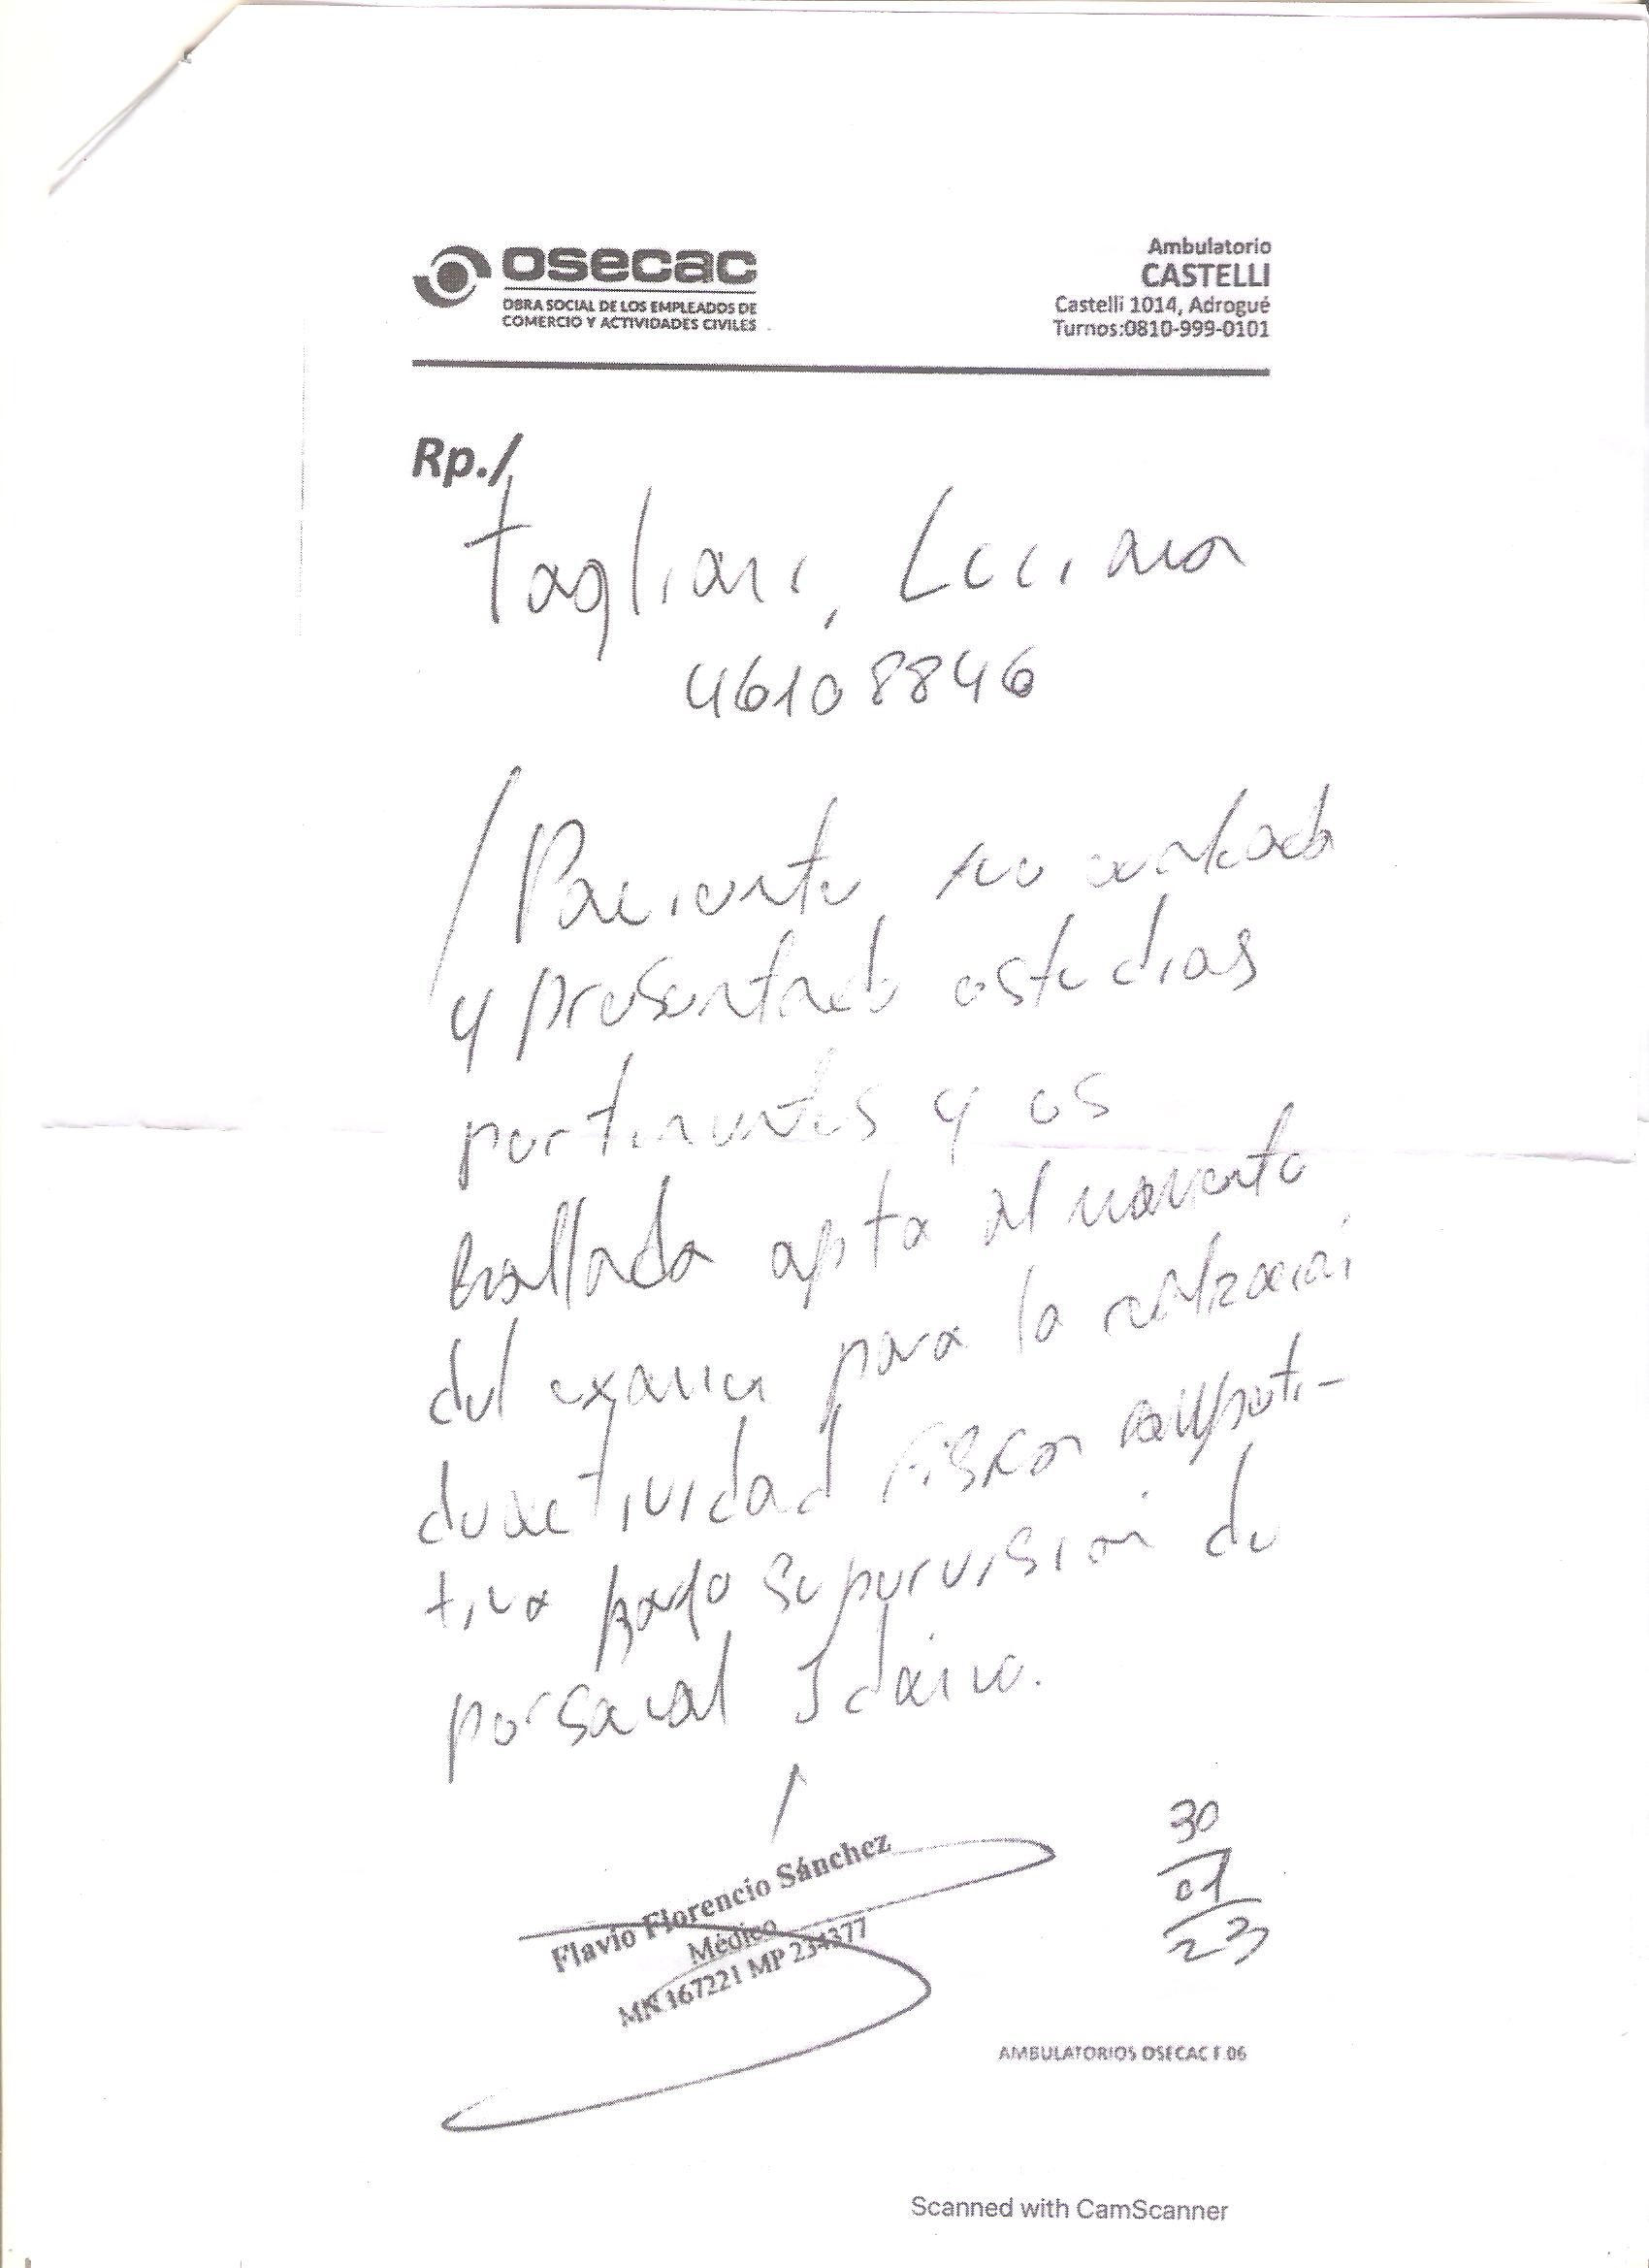 osecac
OBRA SOCIAL DE LOS EMPLEADOS DE
COMERCIO Y ACTIVIDADES CIVILES
Ambulatorio
CASTELLI
Castelli 1014, Adrogué
Turnos:0810-999-0101
Rp./
Tagliani, Luciana
46108846
/Paciente evaluada
y presentado estudios
pertinentes y es
hallada apta al momento
del examen para la realización
de actividad física competi-
tiva bajo supervisión de
personal Idóneo.
Flavio Florencio Sánchez
Médico
MN 167221 MP 234377
30
01
23
AMBULATORIOS OSECAC F.06
Scanned with CamScanner